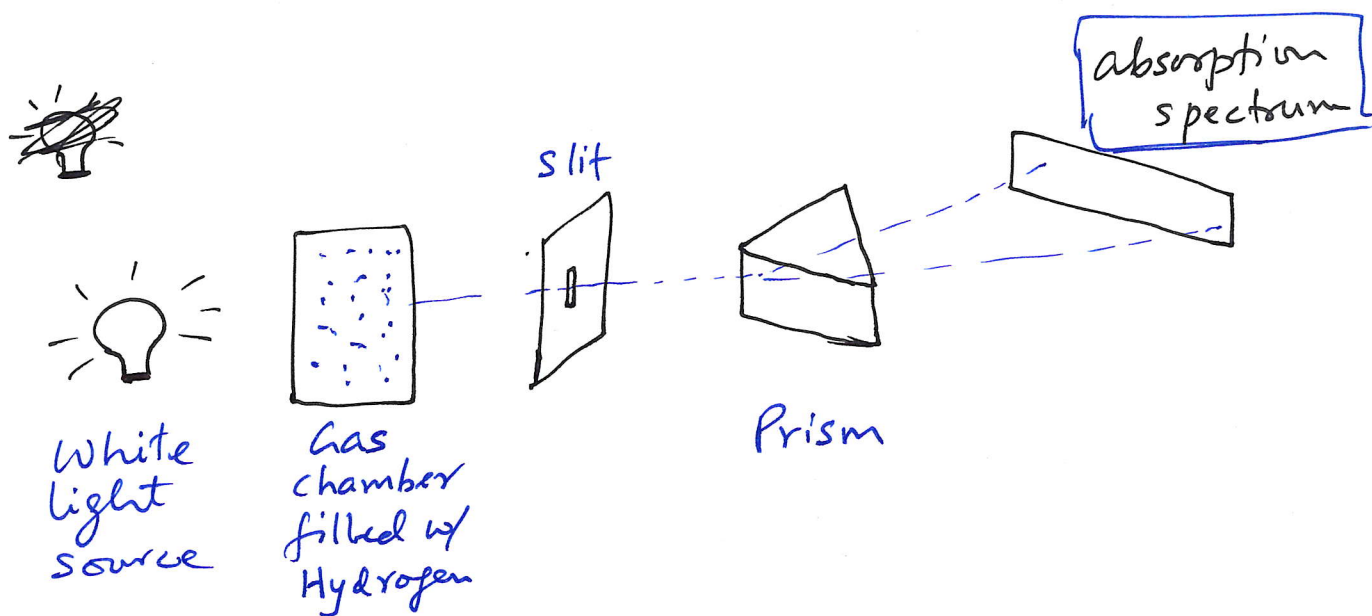 absorption
spectrum
slit
White
light
source
Gas
chamber
filled w/
Hydrogen
Prism